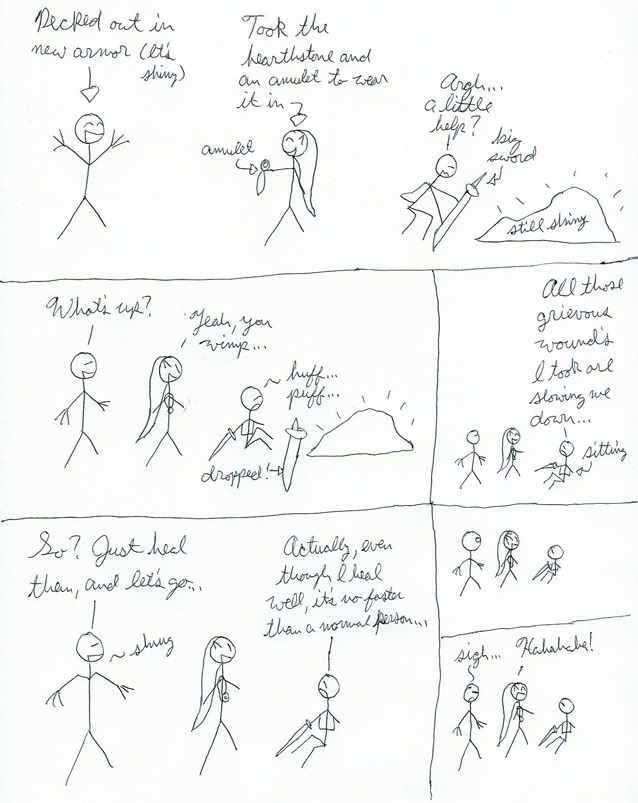 Decked out in
new armor (It's
shiny)
Took the
hearthstone and
an amulet to wear
it in
amulet
Argh...
a little
help?
big
sword
still shiny
What's up?
Yeah, you
wimp...
huff...
puff...
dropped!
All those
grievous
wound's
I took are
slowing me
down...
sitting
So? Just heal
then, and let's go...
shrug
Actually, even
though I heal
well, it's no faster
than a normal person...
sigh...
Hahahaha!